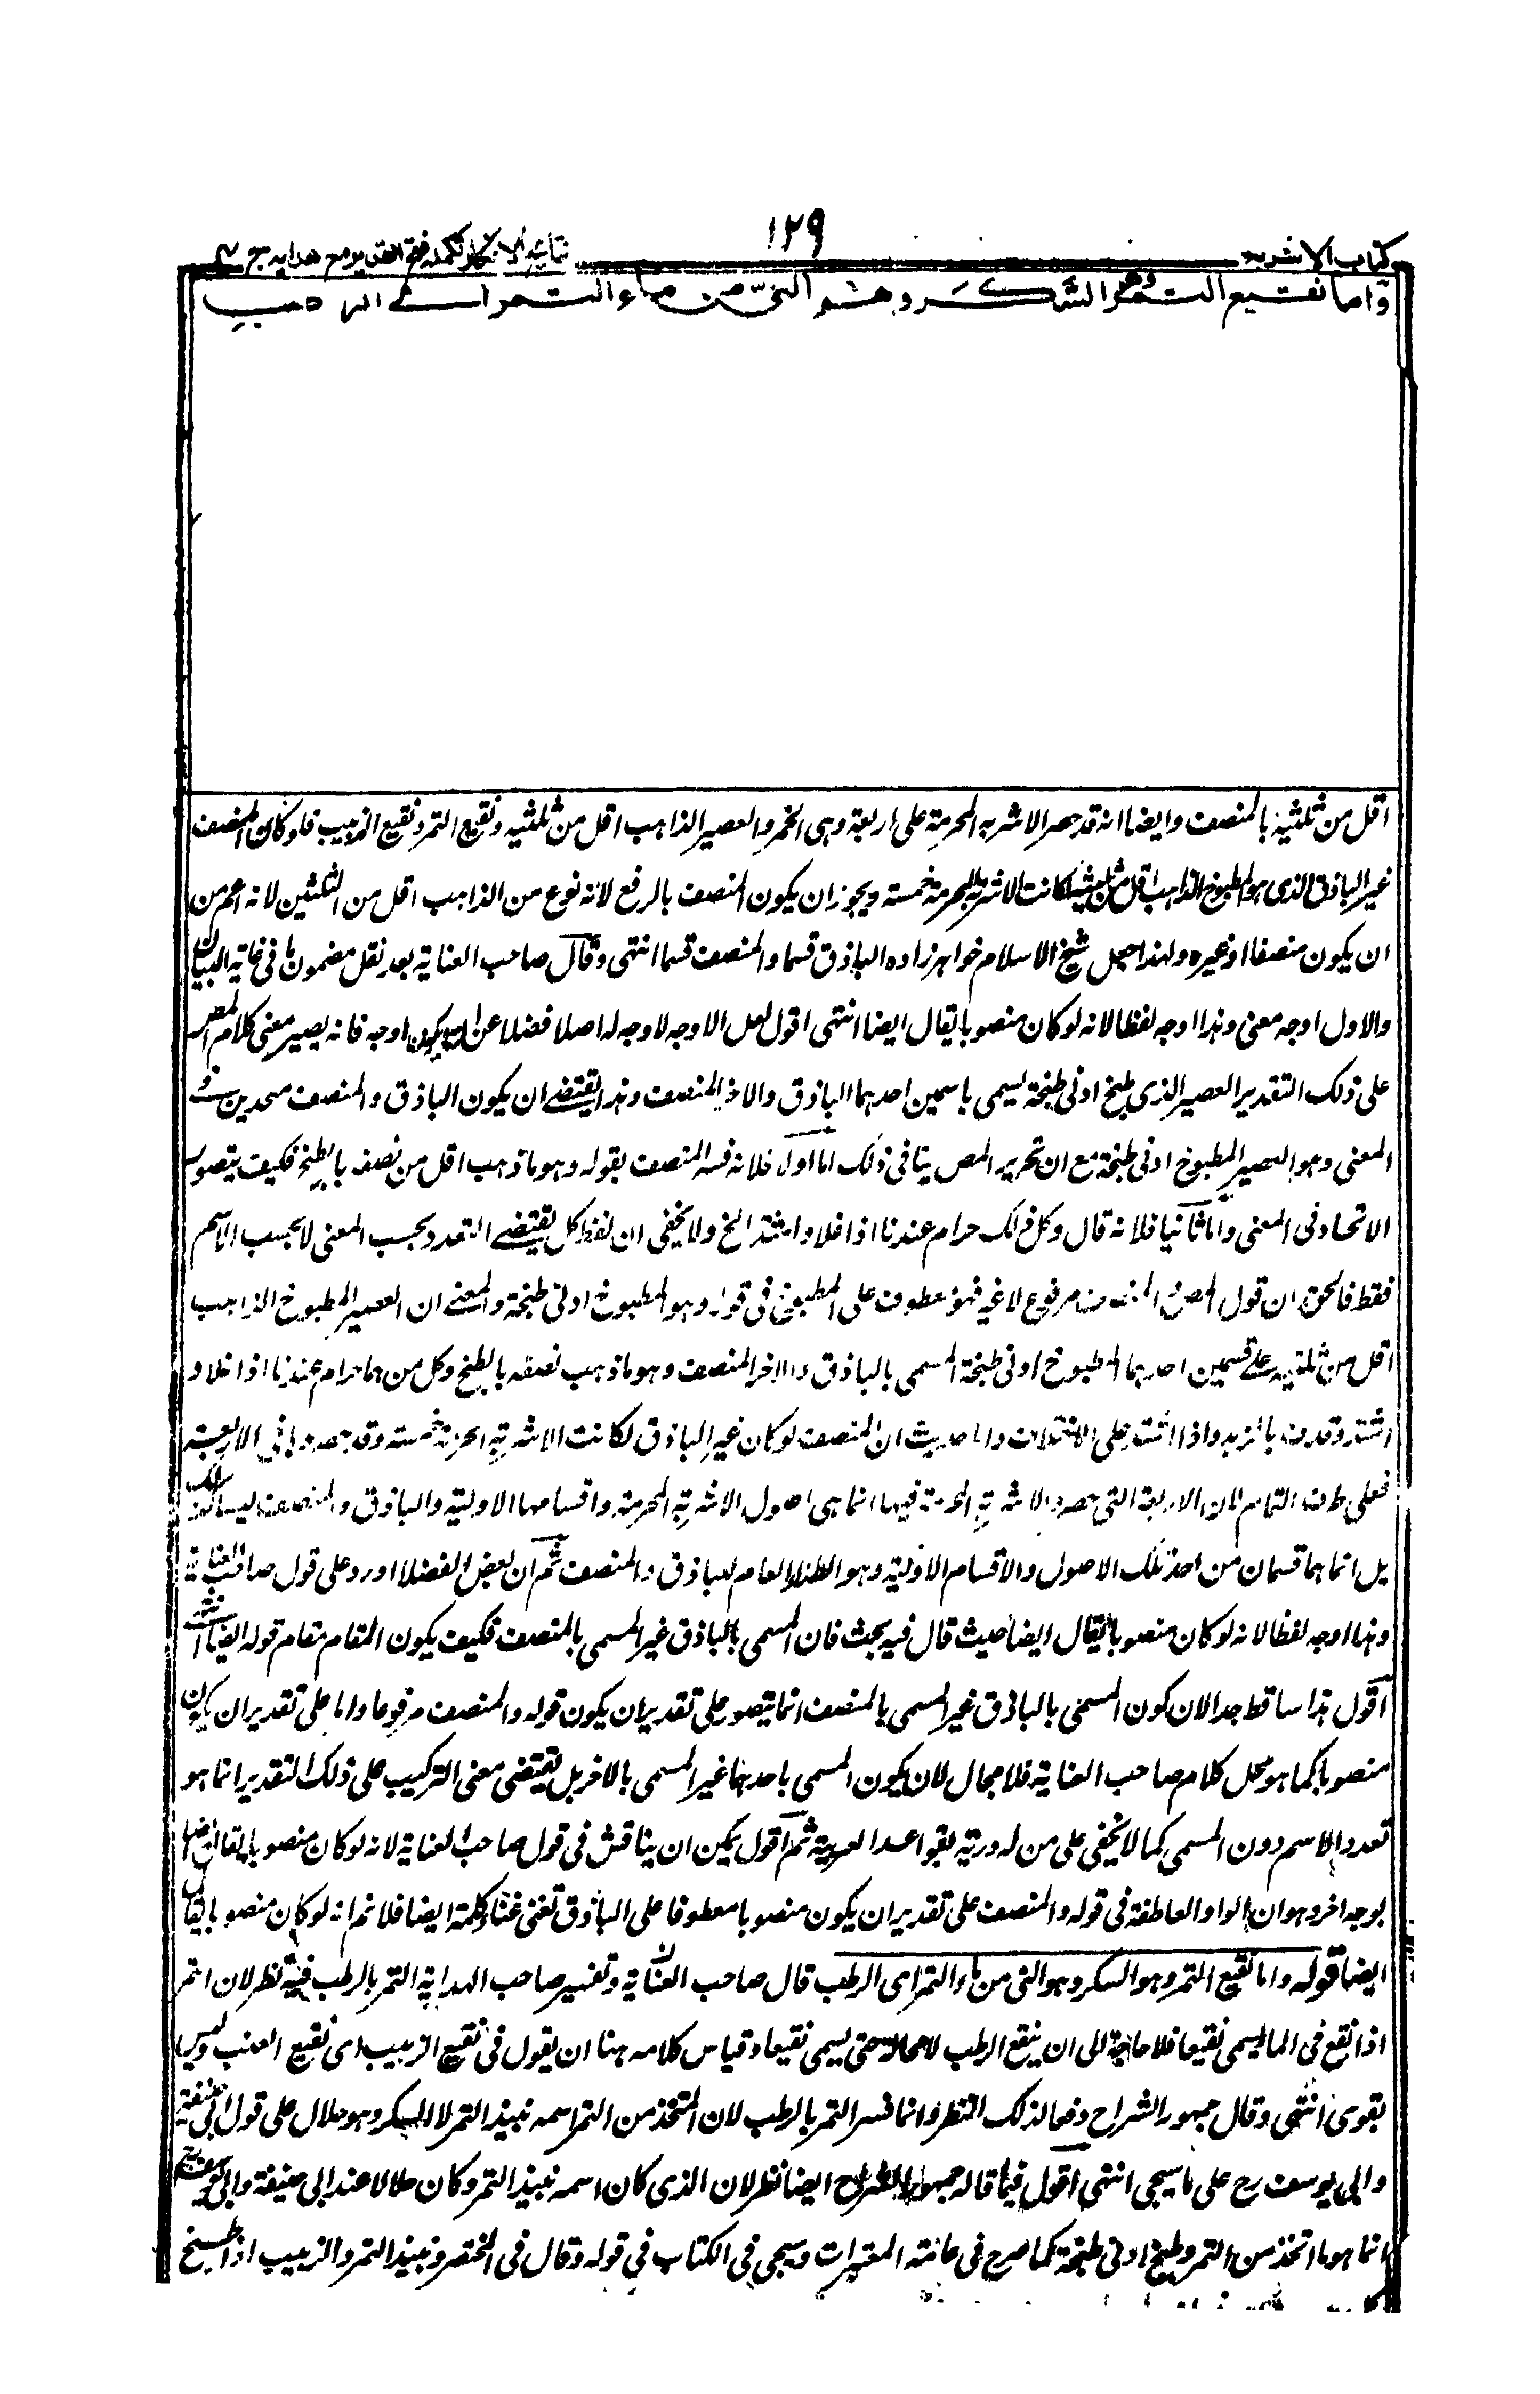 كتاب الاشربه
١٢٩
نتائج الافكار تكمله فتح القدير مع هدايه ج ٤
وأما نقيع التمر وهو السكر وهو النيّ من ماء التمر اى الرطب
اقل من ثلثيه بالمنصف وايضا انه قد حصر الاشربه المحرمة على اربعة وهى الخمر والعصير الذاهب اقل من ثلثيه ونقيع التمر ونقيع الزبيب فلو كان المنصف
غير الباذق الذى هو المطبوخ الذاهب اقل من ثلثيه لكانت الاشربة المحرمة خمسة ويجوز ان يكون المنصف بالرفع لانه نوع من الذاهب اقل من الثلثين لانه اعم من
ان يكون منصفا او غيره ولهذا جعل شيخ الاسلام خواهر زاده الباذق قسما والمنصف قسما انتهى وقال صاحب العناية بعد نقل مضمون ما فى غاية البيان
والاول اوجه معنى وهذا اوجه لفظا لانه لو كان منصوبا يقال ايضا انتهى اقول لعل الاوجه لا وجه له اصلا فضلا عن ان يكون اوجه فانه يصير معنى كلام المص
على ذلك التقدير العصير الذى طبخ ادنى طبخة يسمى باسمين احدهما الباذق والاخر المنصف وهذا يقتضى ان يكون الباذق والمنصف متحدين فى
المعنى وهو العصير المطبوخ ادنى طبخة مع ان تحرير المص ينافى ذلك اما اولا فلانه فسر المنصف بقوله وهو ما ذهب اقل من نصفه بالطبخ فكيف يتصور
الاتحاد فى المعنى واما ثانيا فلانه قال وكل ذلك حرام عندنا اذا غلا واشتد الخ ولا يخفى ان لفظ كل يقتضى التعدد بحسب المعنى لا بحسب الاسم
فقط فالحق ان قول المص والمنصف مرفوع لا غير فهو عطوف على المطبوخ فى قوله وهو المطبوخ ادنى طبخة والمعنى ان العصير المطبوخ الذاهب
اقل من ثلثيه على قسمين احدهما المطبوخ ادنى طبخة المسمى بالباذق والاخر المنصف وهو ما ذهب نصفه بالطبخ وكل منهما حرام عندنا اذا غلا و
اشتد وقذف بالزبد واذا اشتد على الاختلاف واما حديث ان المنصف لو كان غير الباذق لكانت الاشربة المحرمة خمسة وقد حصرها فى الاربعة
فعلى طرف التمام لان الاربعة التى حصر الاشربة المحرمة فيها انما هى اصول الاشربة المحرمة واقسامها الاولية والباذق والمنصف ليسا كذلك
بل انما هما قسمان من احد تلك الاصول والاقسام الاولية وهو الطلاء العام للباذق والمنصف ثم ان بعض الفضلا اورد على قول صاحب العناية
وهذا اوجه لفظا لانه لو كان منصوبا يقال ايضا حيث قال فيه بحث فان المسمى بالباذق غير المسمى بالمنصف فكيف يكون المقام مقام قوله ايضا انتهى
اقول هذا ساقط جدا لان كون المسمى بالباذق غير المسمى بالمنصف انما يتصور على تقدير ان يكون قوله والمنصف مرفوعا واما على تقدير ان يكون
منصوبا كما هو محل كلام صاحب العناية فلا مجال لان يكون المسمى باحدهما غير المسمى بالاخر بل يقتضى معنى التركيب على ذلك التقدير انما هو
تعدد الاسم دون المسمى كما لا يخفى على من له درية بقواعد العربية ثم اقول يمكن ان يناقش فى قول صاحب العناية لانه لو كان منصوبا لقال ايضا
بوجه اخر وهو ان الواو العاطفة فى قوله والمنصف على تقدير ان يكون منصوبا معطوفا على الباذق تغنى غناء كلمة ايضا فلا نم انه لو كان منصوبا يقال
ايضا قوله واما نقيع التمر وهو السكر وهو النى من ماء التمر اى الرطب قال صاحب العناية وتفسير صاحب الهداية التمر بالرطب فيه نظر لان التمر
اذا نقع فى الماء يسمى نقيعا فلا حاجة الى ان ينقع الرطب لا محالة حتى يسمى نقيعا وقياس كلامه هنا ان يقول فى نقيع الزبيب اى نقيع العنب وليس
بقوى انتهى وقال جمهور الشراح دفعا لذلك النظر وانما فسر التمر بالرطب لان المتخذ من التمر اسمه نبيذ التمر لا السكر وهو حلال على قول ابى حنيفة
وابى يوسف رح على ما سيجى انتهى اقول فيما قاله جمهور الشراح ايضا نظر لان الذى كان اسمه نبيذ التمر وكان حلالا عند ابى حنيفة وابى يوسف رح
انما هو ما اتخذ من التمر وطبخ ادنى طبخة كما صرح فى عامة المعتبرات وسيجى فى الكتاب فى قوله وقال فى المختصر ونبيذ التمر والزبيب اذا طبخ